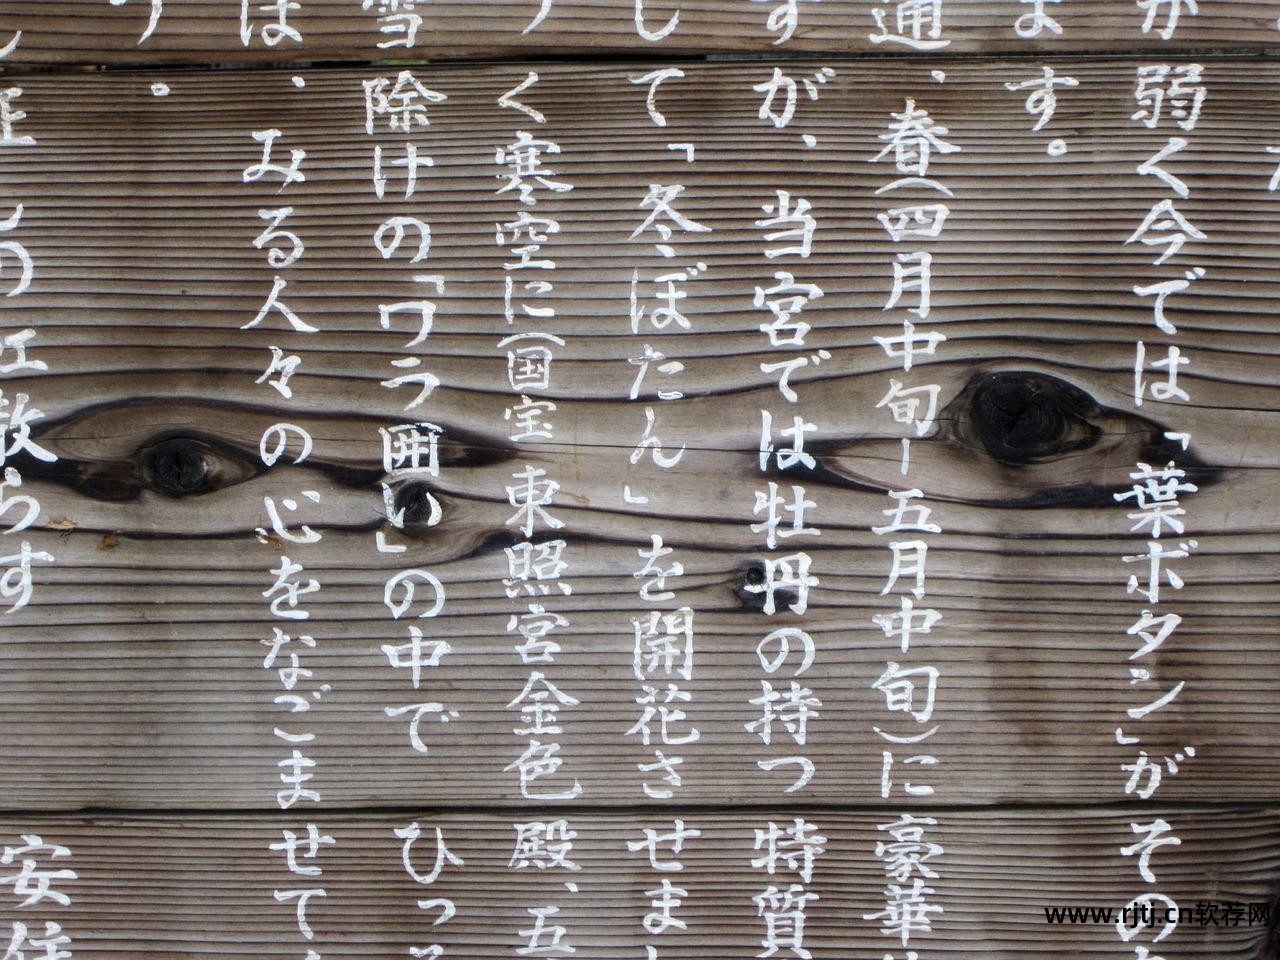 が弱く今では「葉ボタン」がその
ます。
通、春(四月中旬ー五月中旬)に豪華
すが、当宮では牡丹の持つ特質
して「冬ぼたん」を開花させまし
く寒空に(国宝東照宮金色殿、五
雪除けの「ワラ囲い」の中でひっそ
は、みる人々の心をなごませて
う。
散らす
安住
www.rjtj.cn软荐网